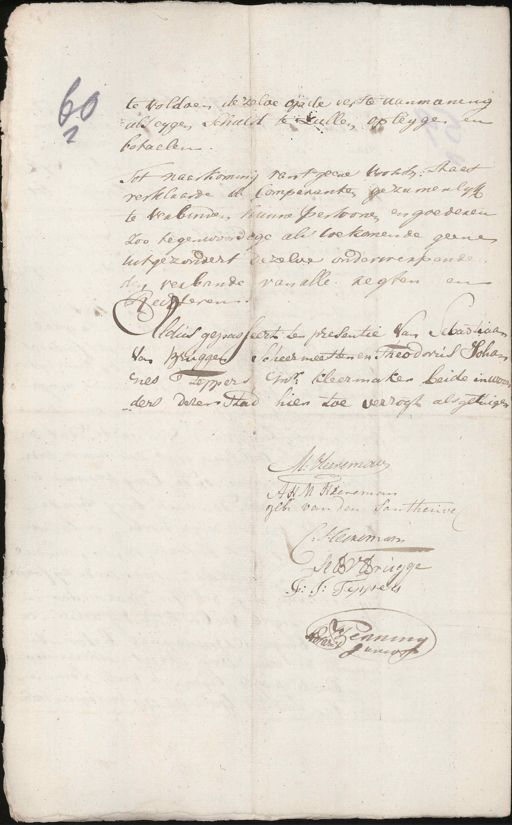 60
2
te voldoen, dezelve op de eerste aanmaning
als eygen schuld te zullen opleggen en
betaelen.
Tot naarkoming van t geene voorsz: Staet
verklaarde de Comparanten gezamenlyk
te verbinden hunne persoonen en goederen
zoo tegenwoordige als toekomende geene
uitgezondert dezelve onderwerpende
den verbande van alle regten en
Regteren
Aldus gepasseert ter presentie van Sebastiaan
van Brugge, scheermeester en Theodorus Johan
nes Teppers mr. kleermaker beide inwoon
ders dezer Stad hier toe verzogt als getuigen
M. Heereman
A H M Heereman
geb: van den Santheuvel
C. Heereman
S V Brugge
T: J: Teppers
Wenning